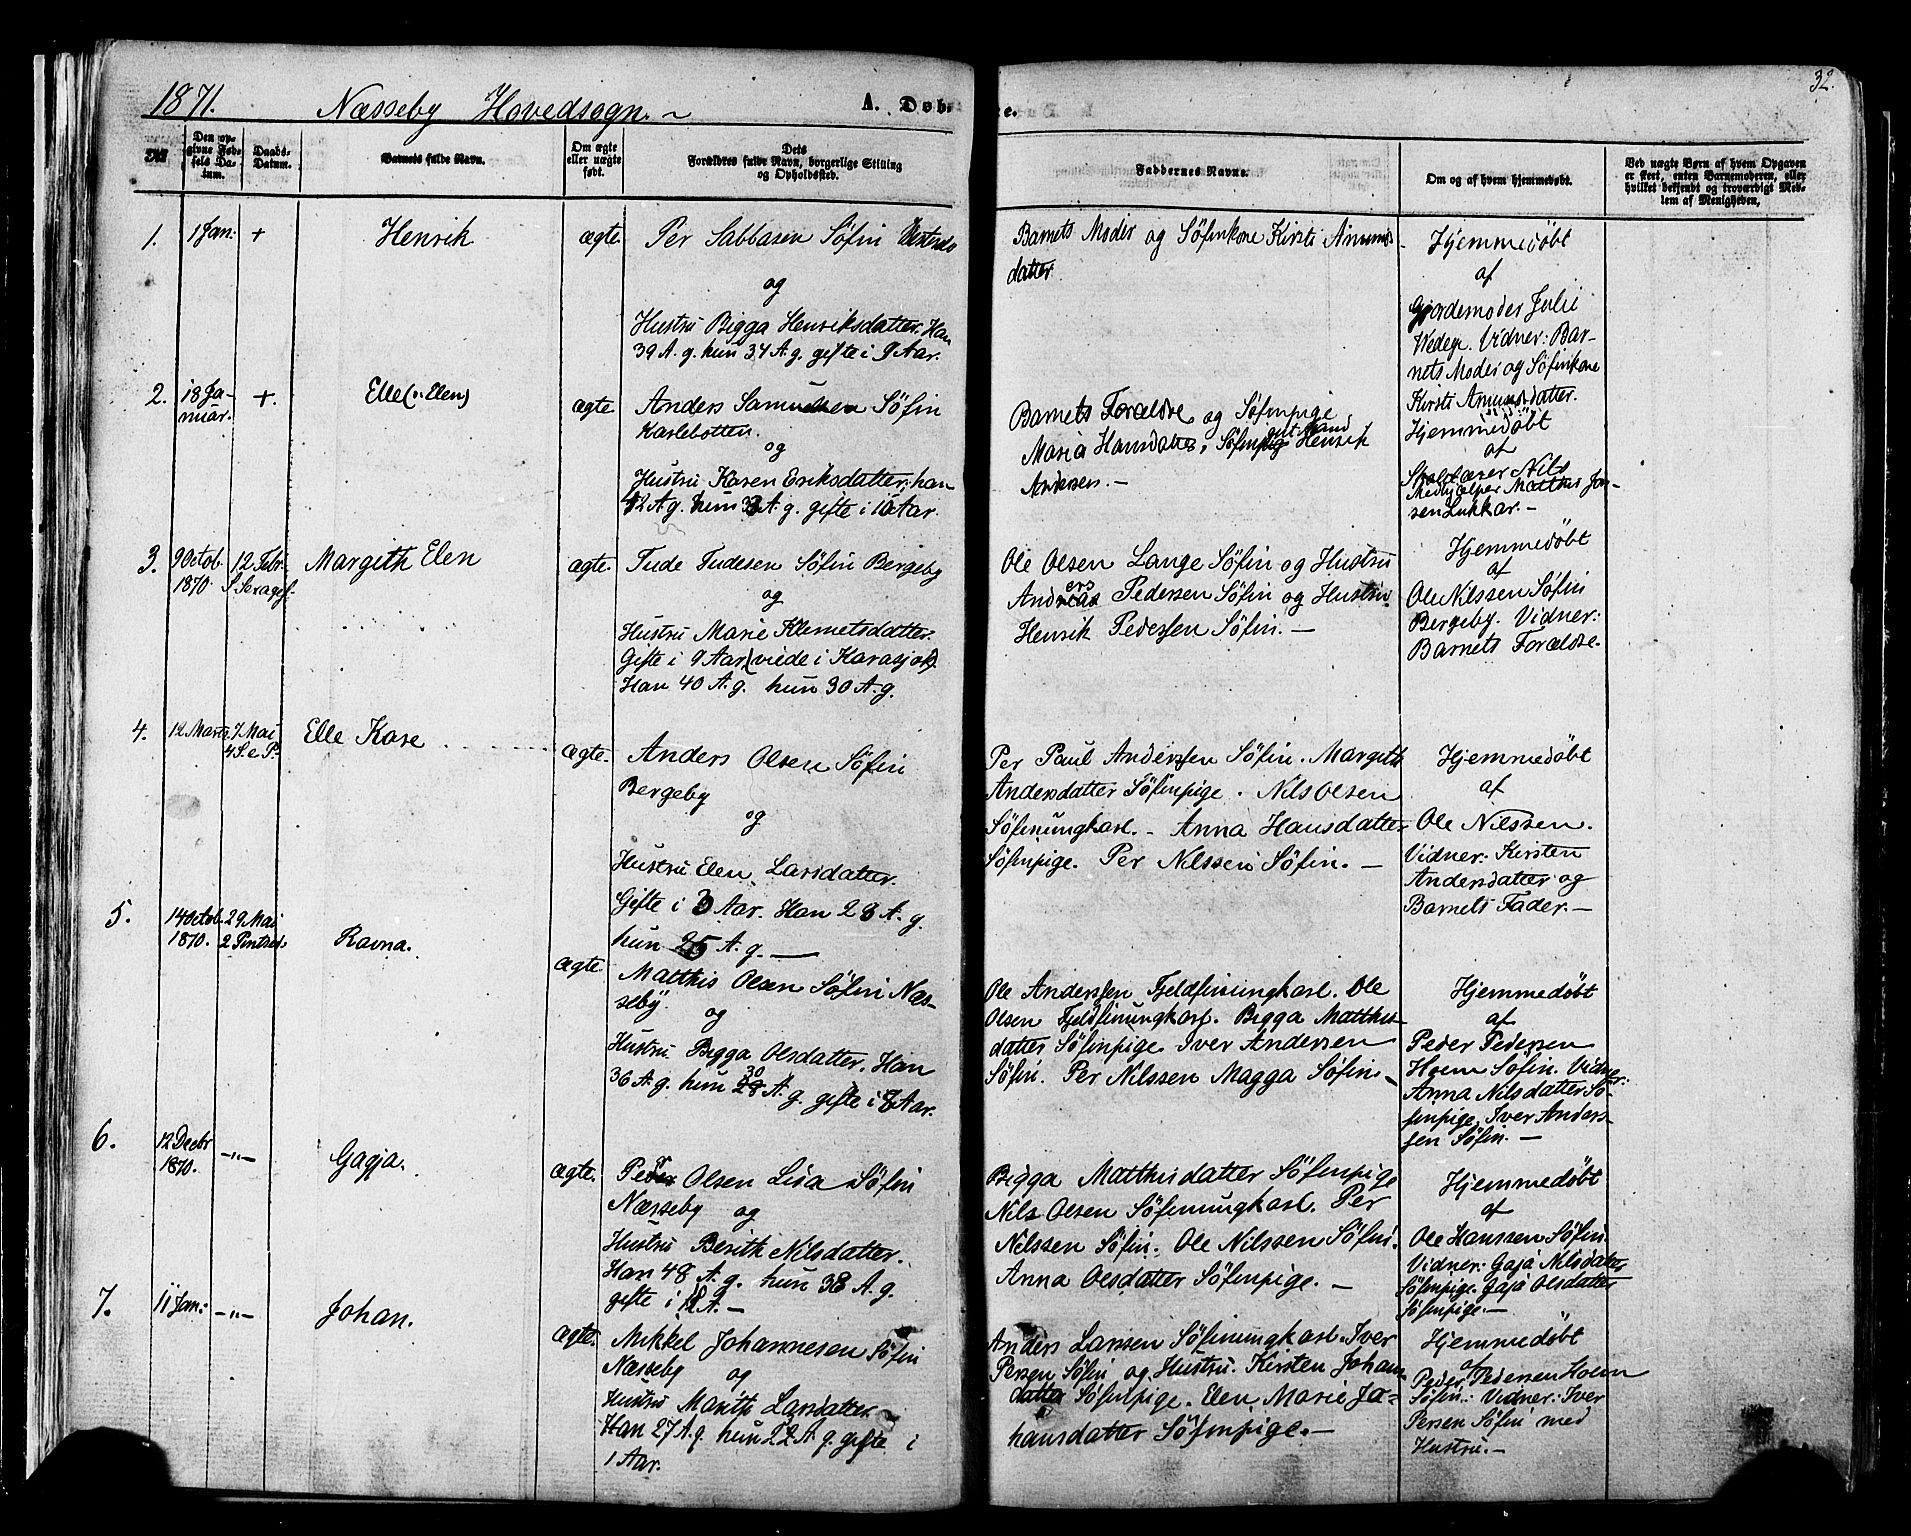 32.
1871. Næsseby Hovedsogn. ~ A. Døb- e.
No
Den opgivne Fødsels Datum.
Daabs-Datum.
Barnets fulde Navn.
Om ægte eller uægte født.
Dets Forældres fulde Navn, borgerlige Stilling og Opholdssted.
Faddernes Navne.
Om og af hvem hjemmedøbt.
Ved uægte Børn af hvem Opgaven er skeet, enten Barnemoderen, eller hvilket bekjendt og troværdigt Medlem af Menigheden,
1. 1 Jan: + Henrik ægte.
Per Sabbasen Søfin
og
Hustru Bigga Henriksdatter. Han
39 A. g. hun 34 A. g. gifte i 9 Aar.
Barnets Moder og Søfinkone Kirsti Amunds-
datter.
Hjemmedøbt
af
Gjordemoder Julie
Wedege. Vidner: Bar-
nets Moder og Søfinkone
Kirsti Amundsdatter.
2. 18 Ja-
nuar. +. Elle (v: Elen) ægte
Anders Samuelsen Søfin
Karlebotten.
og
Hustru Karen Eriksdatter. han
42 A. g. hun A. g. gifte i 10 Aar.
Barnets Forældre og Søfinpige
Maria Hansdatter, Søfin gift Mand Henrik
Andersen. —
Hjemmedøbt
af
Skolelærer Nils
Medhjælper Matthis Jon-
sen Lukkar. —
3. 9 Octob.
1870. 12 Febr.
S. Sexages. Margith Elen ægte.
Tude Tudesen Søfin Bergeby
og
Hustru Marie Klemetsdatter.
Gifte i 9 Aar (viede i Karasjok).
Han 40 A. g. hun 30 A. g.
Ole Olsen Lange Søfin og Hustru
Anders Pedersen Søfin og Hustru.
Henrik Pedersen Søfin. —
Hjemmedøbt
af
Ole Nilssen Søfin
Bergeby. Vidner:
Barnets Forældre.
4. 12 Marts 7 Mai
4 S. e P. Elle Kare ægte.
Anders Olsen Søfin
Bergeby
og
Hustru Elen Larsdatter.
Gifte i 3 Aar. Han 28 A. g.
hun 25 A. g. —
Per Paul Anderssen Søfin. Margith
Andersdatter Søfinpige. Nils Olsen
Søfinungkarl. - Anna Hansdatter
Søfinpige. Per Nilssen Søfin. —
Hjemmedøbt
af
Ole Nilssen.
Vidner: Kirsten
Andersdatter og
Barnets Fader. —
5. 14 Octob.
1870. 29 Mai
2 Pintsed. Ravna. ægte.
Matthis Olsen Søfin Næs-
seby
og
Hustru Bigga Olsdatter. Han
36 A. g. hun 30 A. g. gifte i 8 Aar.
Ole Anderssen Fjeldfinungkarl. Ole
Olsen Fjeldfinungkarl. Bigga Matthis-
datter Søfinpige. Iver Andersen
Søfin. Per Nilssen Magga Søfin. -
Hjemmedøbt
af
Peder Pedersen
Holm Søfin. Vidner:
Anna Nilsdatter Sø-
finpige. Iver Anders-
sen Søfin. —
6. 12 Decbr
1870. -"- Gagja. ægte.
Per Olsen Lisa Søfin
Næsseby og
Hustru Berith Nilsdatter.
Han 48 A. g. hun 38 A. g.
gifte i 12 A. —
Bigga Matthisdatter Søfinpige
Nils Olsen Søfinungkarl. Per
Nilssen Søfin. Ole Nilssen Søfin.
Anna Olsdatter Søfinpige. —
Hjemmedøbt
af
Ole Hanssen Søfin.
Vidner: Gaja Nilsdatter
Søfinpige. Gaja Olsdatter
Søfinpige. —
7. 11 Jan: -"- Johan. ægte.
Mikkel Johannesen Søfin
Næsseby og
Hustru Marith Larsdatter.
Han 27 A. g. hun 22 A. g. gifte i
1 Aar.
Anders Larssen Søfinungkarl. Iver
Persen Søfin og Hustru. Kirsten Johans-
datter Søfinpige. Elen Marie Jo-
hansdatter Søfinpige. —
Hjemmedøbt
af
Peder Pedersen Holm
Søfin: Vidner: Iver
Persen Søfin med
Hustru. —